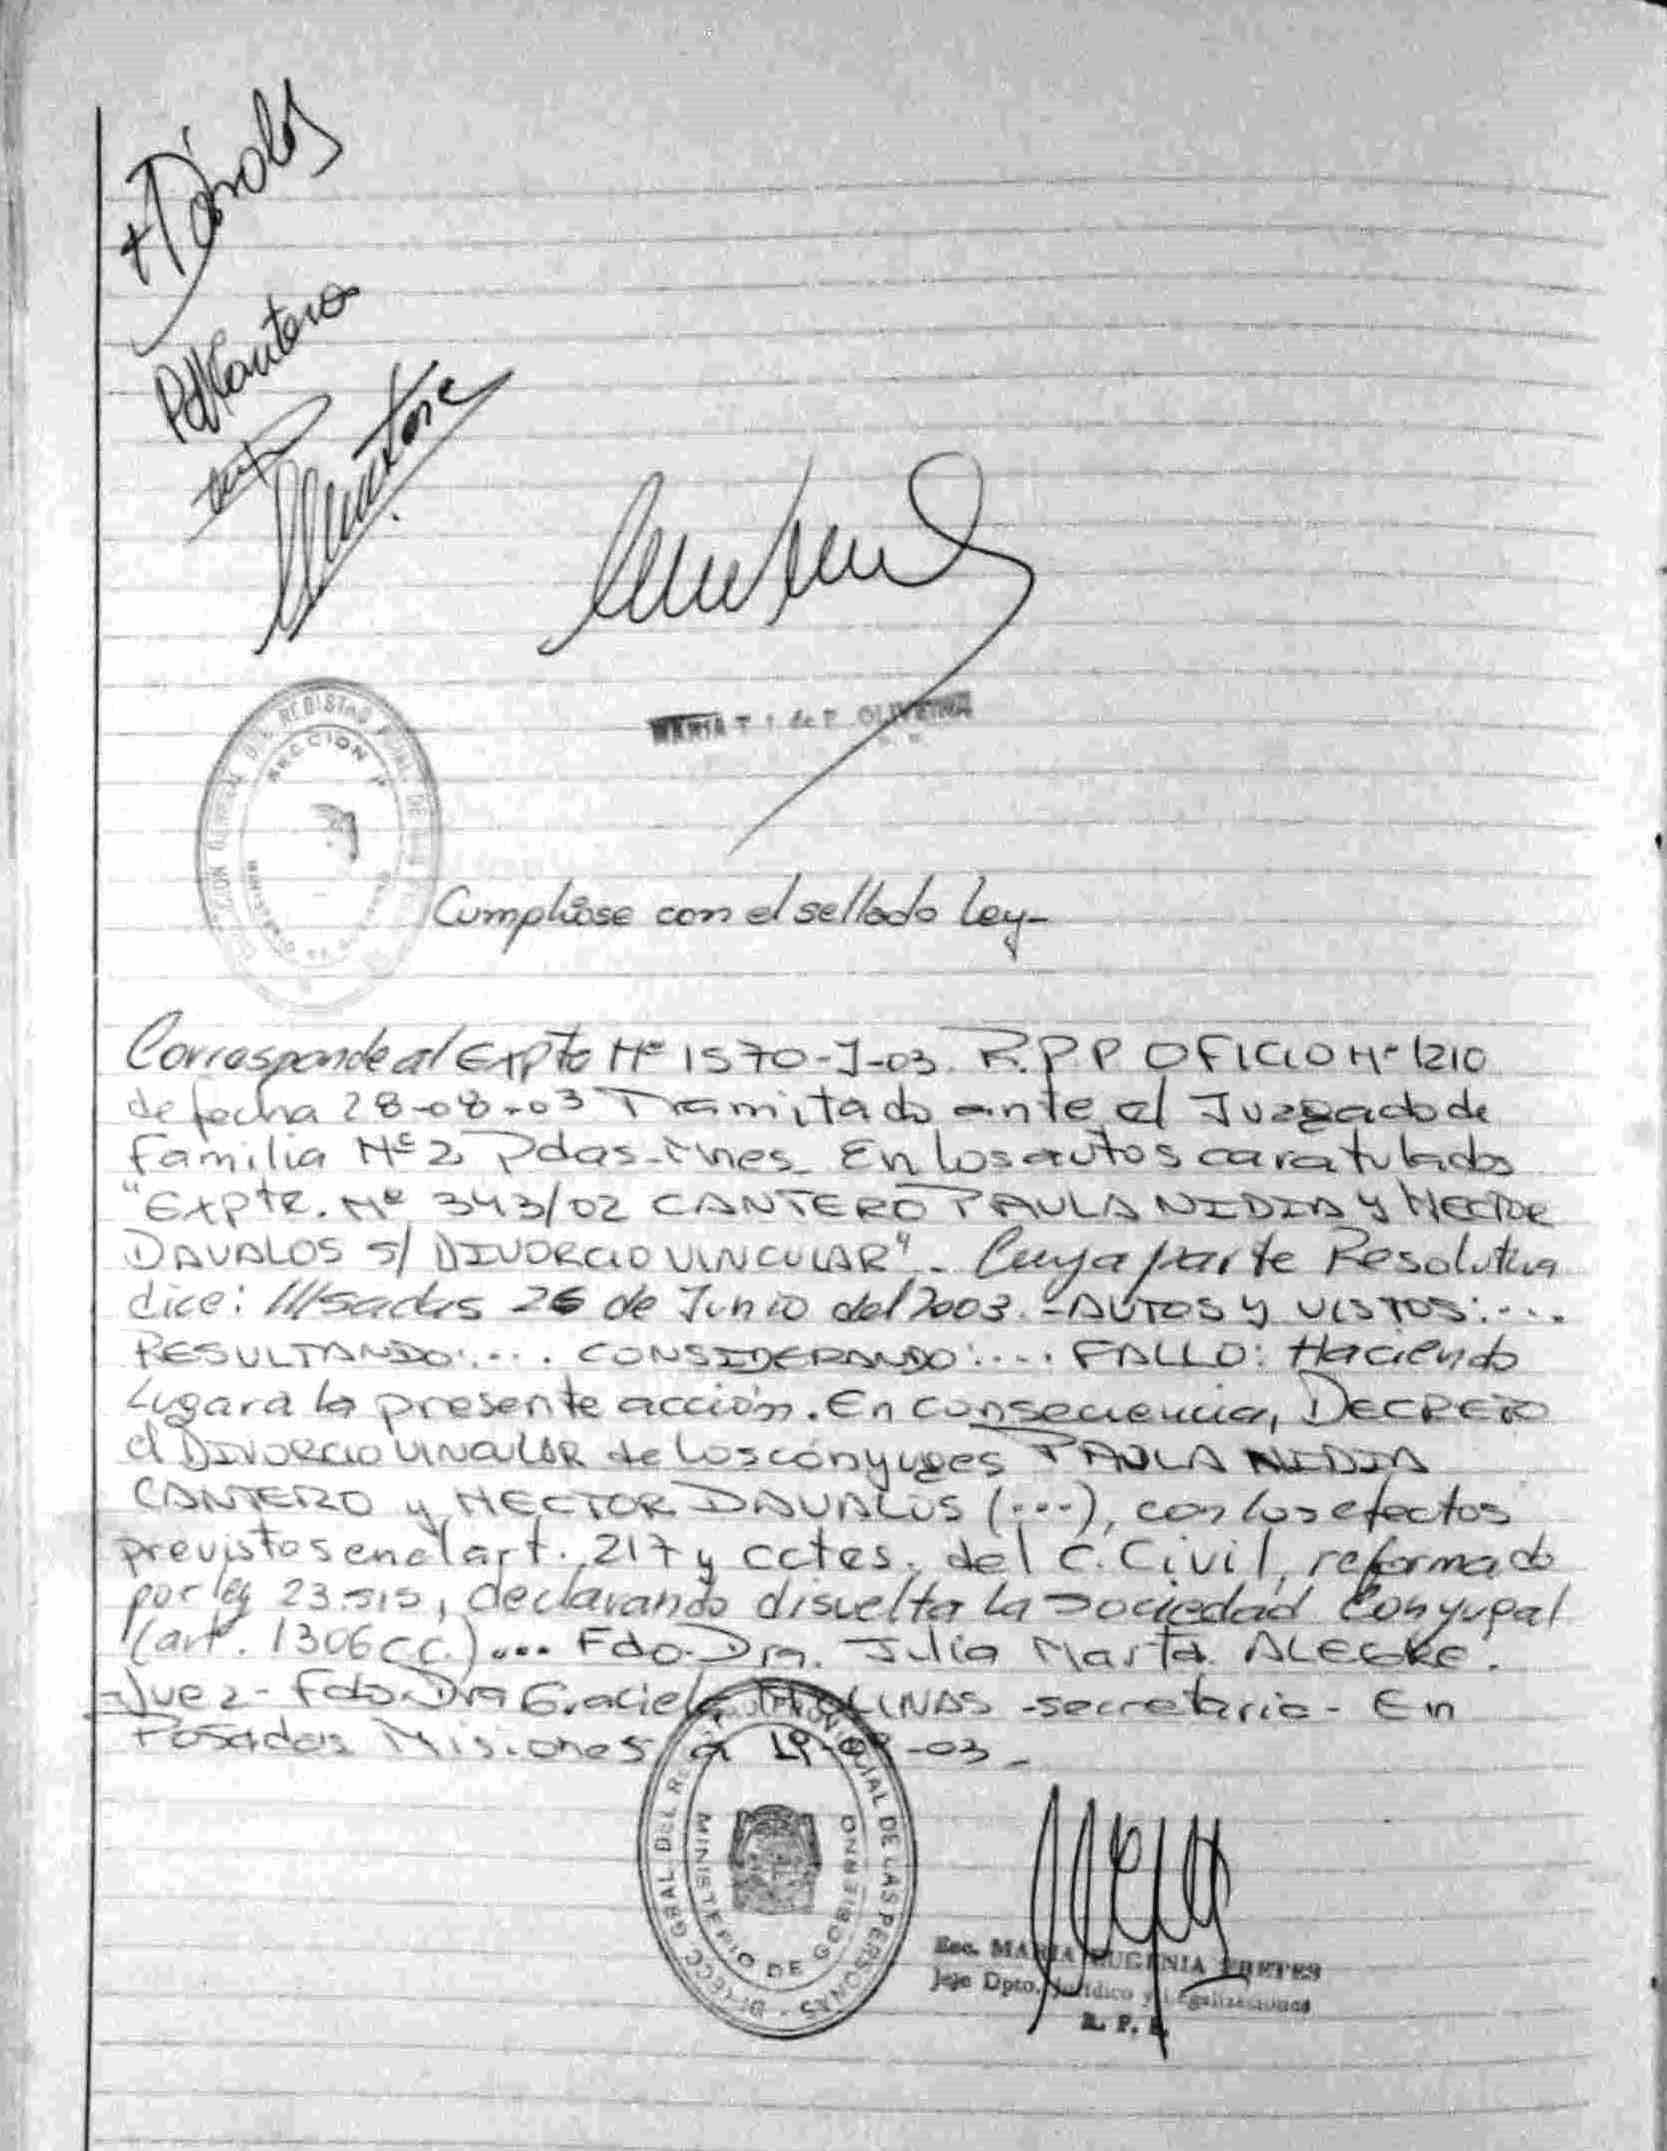 HDávalos
PNCantero
MARIA T. I. de P. OLIVEIRA
DIRECCION GENERAL DEL REGISTRO PCIAL DE LAS
SECCION
MINISTERIO DE GOBIERNO
Cumplióse con el sellado Ley-
Corresponde al Expte Nº 1570-J-03. R.P.P OFICIO Nº 1210
de fecha 28-08-03 Tramitado ante el Juzgado de
Familia Nº 2 Pdas-Mnes. En los autos caratulados
"Expte. Nº 343/02 CANTERO PAULA NIDIA y HECTOR
DAVALOS S/ DIVORCIO VINCULAR". Cuya parte Resolutiva
dice: ///sadas 26 de Junio del 2003.-AUTOS y VISTOS:...
RESULTANDO:... CONSIDERANDO:.... FALLO: Haciendo
Lugar a la presente acción. En consecuencia, DECRETO
el DIVORCIO VINCULAR de los cónyuges PAULA NIDIA
CANTERO y HECTOR DAVALOS (...), con los efectos
previstos en el art. 217 y cctes. del C. Civil, reformado
por ley 23.515, declarando disuelta la Sociedad Conyugal
(art. 1306 C.C.)... Fdo-Dra. Julia Marta ALEGRE.
Juez- Fdo-Dra Graciela MOLINAS -secretaria- En
Posadas Misiones a 19- -03-
DIRECC GRAL DEL REGISTRO PROVINCIAL DE LAS PERSONAS -
MINISTERIO DE GOBIERNO
Esc. MARIA EUGENIA PRETES
Jefe Dpto. Jurídico y Legalizaciones
R. P. P.